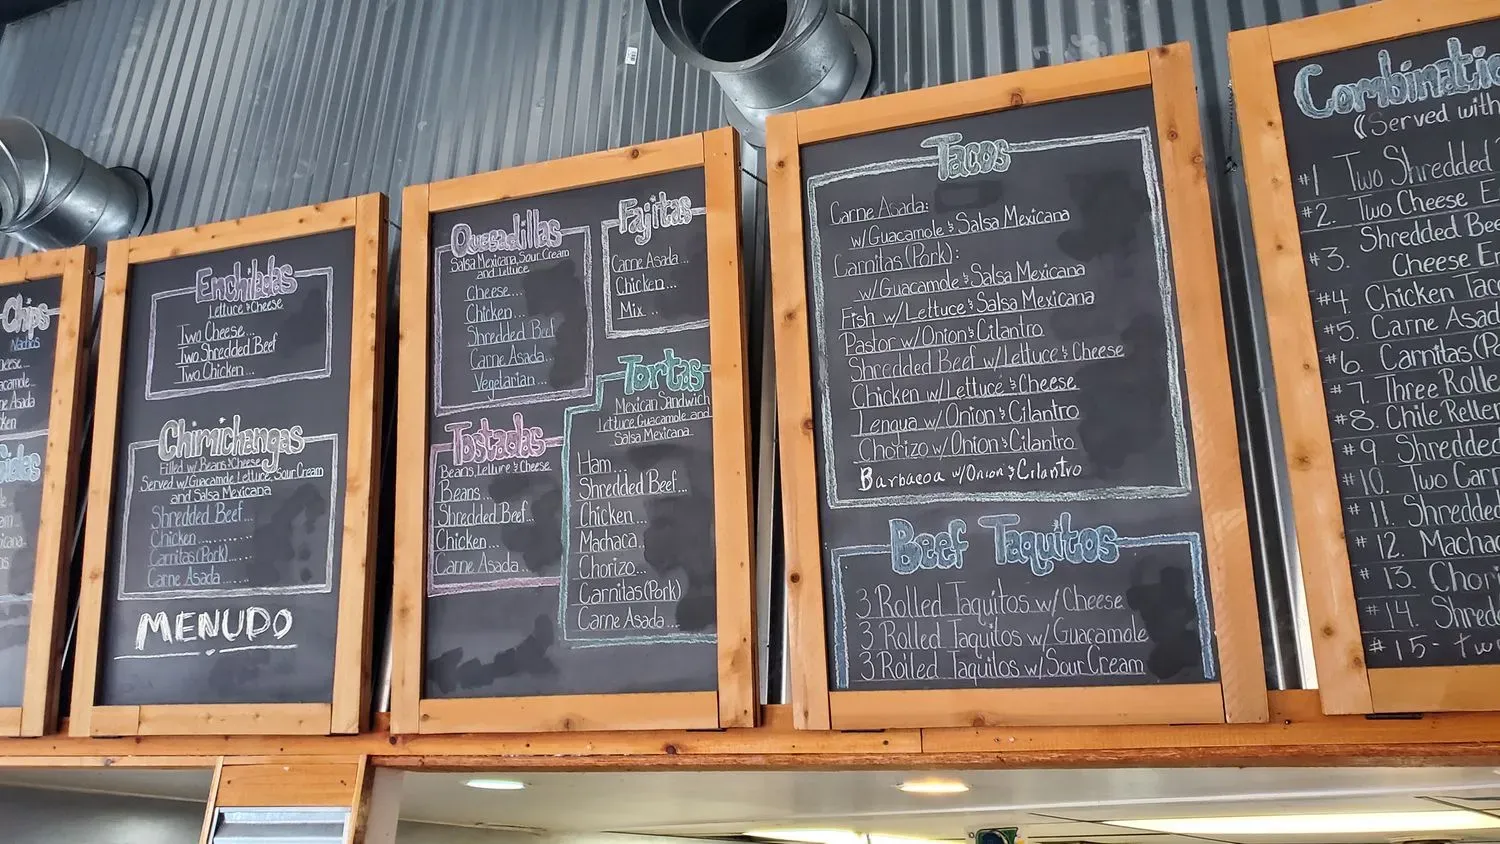 Chips
Nachos
Enchiladas
Lettuce & Cheese
Two Cheese...
Two Shredded Beef
Two Chicken...
Chimichangas
Filled w/ Beans & Cheese
Served w/ Guacamole Lettuce, Sour Cream
and Salsa Mexicana
Shredded Beef...
Chicken..........
Carnitas (Pork)......
Carne Asada.......
MENUDO
Quesadillas
Salsa Mexicana, Sour Cream
and Lettuce
Cheese....
Chicken....
Shredded Beef
Carne Asada...
Vegetarian...
Tostadas
Beans, Lettuce & Cheese
Beans...
Shredded Beef...
Chicken...
Carne Asada...
Fajitas
Carne Asada...
Chicken....
Mix..
Tortas
Mexican Sandwich
Lettuce Guacamole and
Salsa Mexicana
Ham...
Shredded Beef...
Chicken...
Machaca...
Chorizo...
Carnitas (Pork)
Carne Asada...
Tacos
Carne Asada:
w/ Guacamole & Salsa Mexicana
Carnitas (Pork):
w/ Guacamole & Salsa Mexicana
Fish w/ Lettuce & Salsa Mexicana
Pastor w/ Onion & Cilantro
Shredded Beef w/ Lettuce & Cheese
Chicken w/ Lettuce & Cheese
Lengua w/ Onion & Cilantro
Chorizo w/ Onion & Cilantro
Barbacoa w/ Onion & Cilantro
Beef Taquitos
3 Rolled Taquitos w/ Cheese
3 Rolled Taquitos w/ Guacamole
3 Rolled Taquitos w/ Sour Cream
(Served with
#1 Two Shredded
#2. Two Cheese
#3. Shredded
Cheese
#4. Chicken
#5. Carne
#6. Carnitas
#7. Three
#8. Chile
#9. Shredded
#10. Two
#11. Shredded
#12.
#13.
#14.
#15-